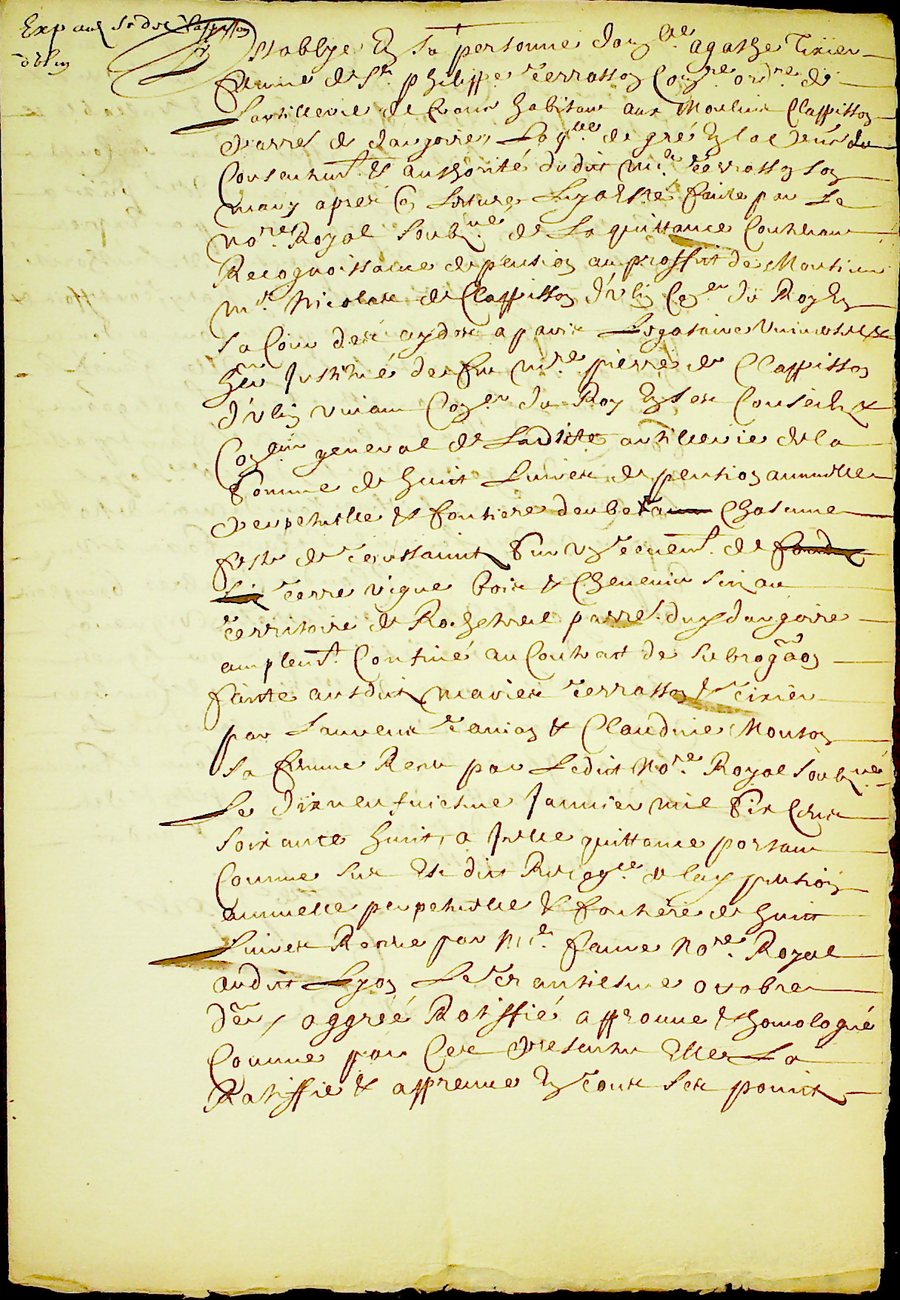 Exp au Sr de Clapisson
d'Ulin
Establye En sa personne dam.lle agathe Tixier
femme de Sr. philippe Terrasson Com.re ord.re de
L'artillerie de france habitant aux Moulins Clappisson
parr.e de dargoire, Laq.lle de gré En la
Consentem.t Et authorité dudit m.r Terrasson son
mary apres la lecture faite par Le
no.re Royal soubz.né de La quittance Contenant
Recognoissance de pension au proffit de Monsieur
m.re Nicolas de Clappisson d'Ulin Con.er du Roy En
sa Cour des aydes a paris Legataire universel &
her. Institué de feu m.re pierre de Clappisson
d'Ulin vivant Con.er du Roy En ses Conseils &
general de Ladite artillerie de la
somme de huit Livres de pension annuelle
perpetuelle & fontiere deube a Chascune
feste de Toussaints sur Un Tenem.t de fonds
sis Terre vigne bois & Chenevier sis au
Territoire de Rochetrel parr.e dud dargoire
amplem.t Confiné au Contrat de subroga.on
fainte ausdits mariés Terrasson & Tixier
par Laurens & Claudine Mouton
sa femme Receu par Ledit No.re Royal soubz.né
Le dixneufuiesme Januier mil six Cens
soixante huit, a Icelle quittance portant
Comme sus Est dit Recog.ce de lad pension
annuelle perpetuelle & fontiere de huit
Liures Receue par M.e faure No.re Royal
audit Lyon Le Trantiesme octobre
d.er, aggréé Ratiffié approuue & homologué
Comme par Ces presentes Elle La
Ratiffie & appreuue En Tous ses points